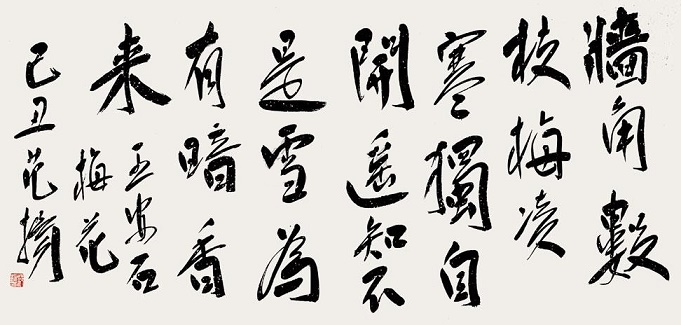 牆角數
枝梅凌
寒獨自
開遥知不
是雪為
有暗香
来
王安石
梅花
己丑范擕